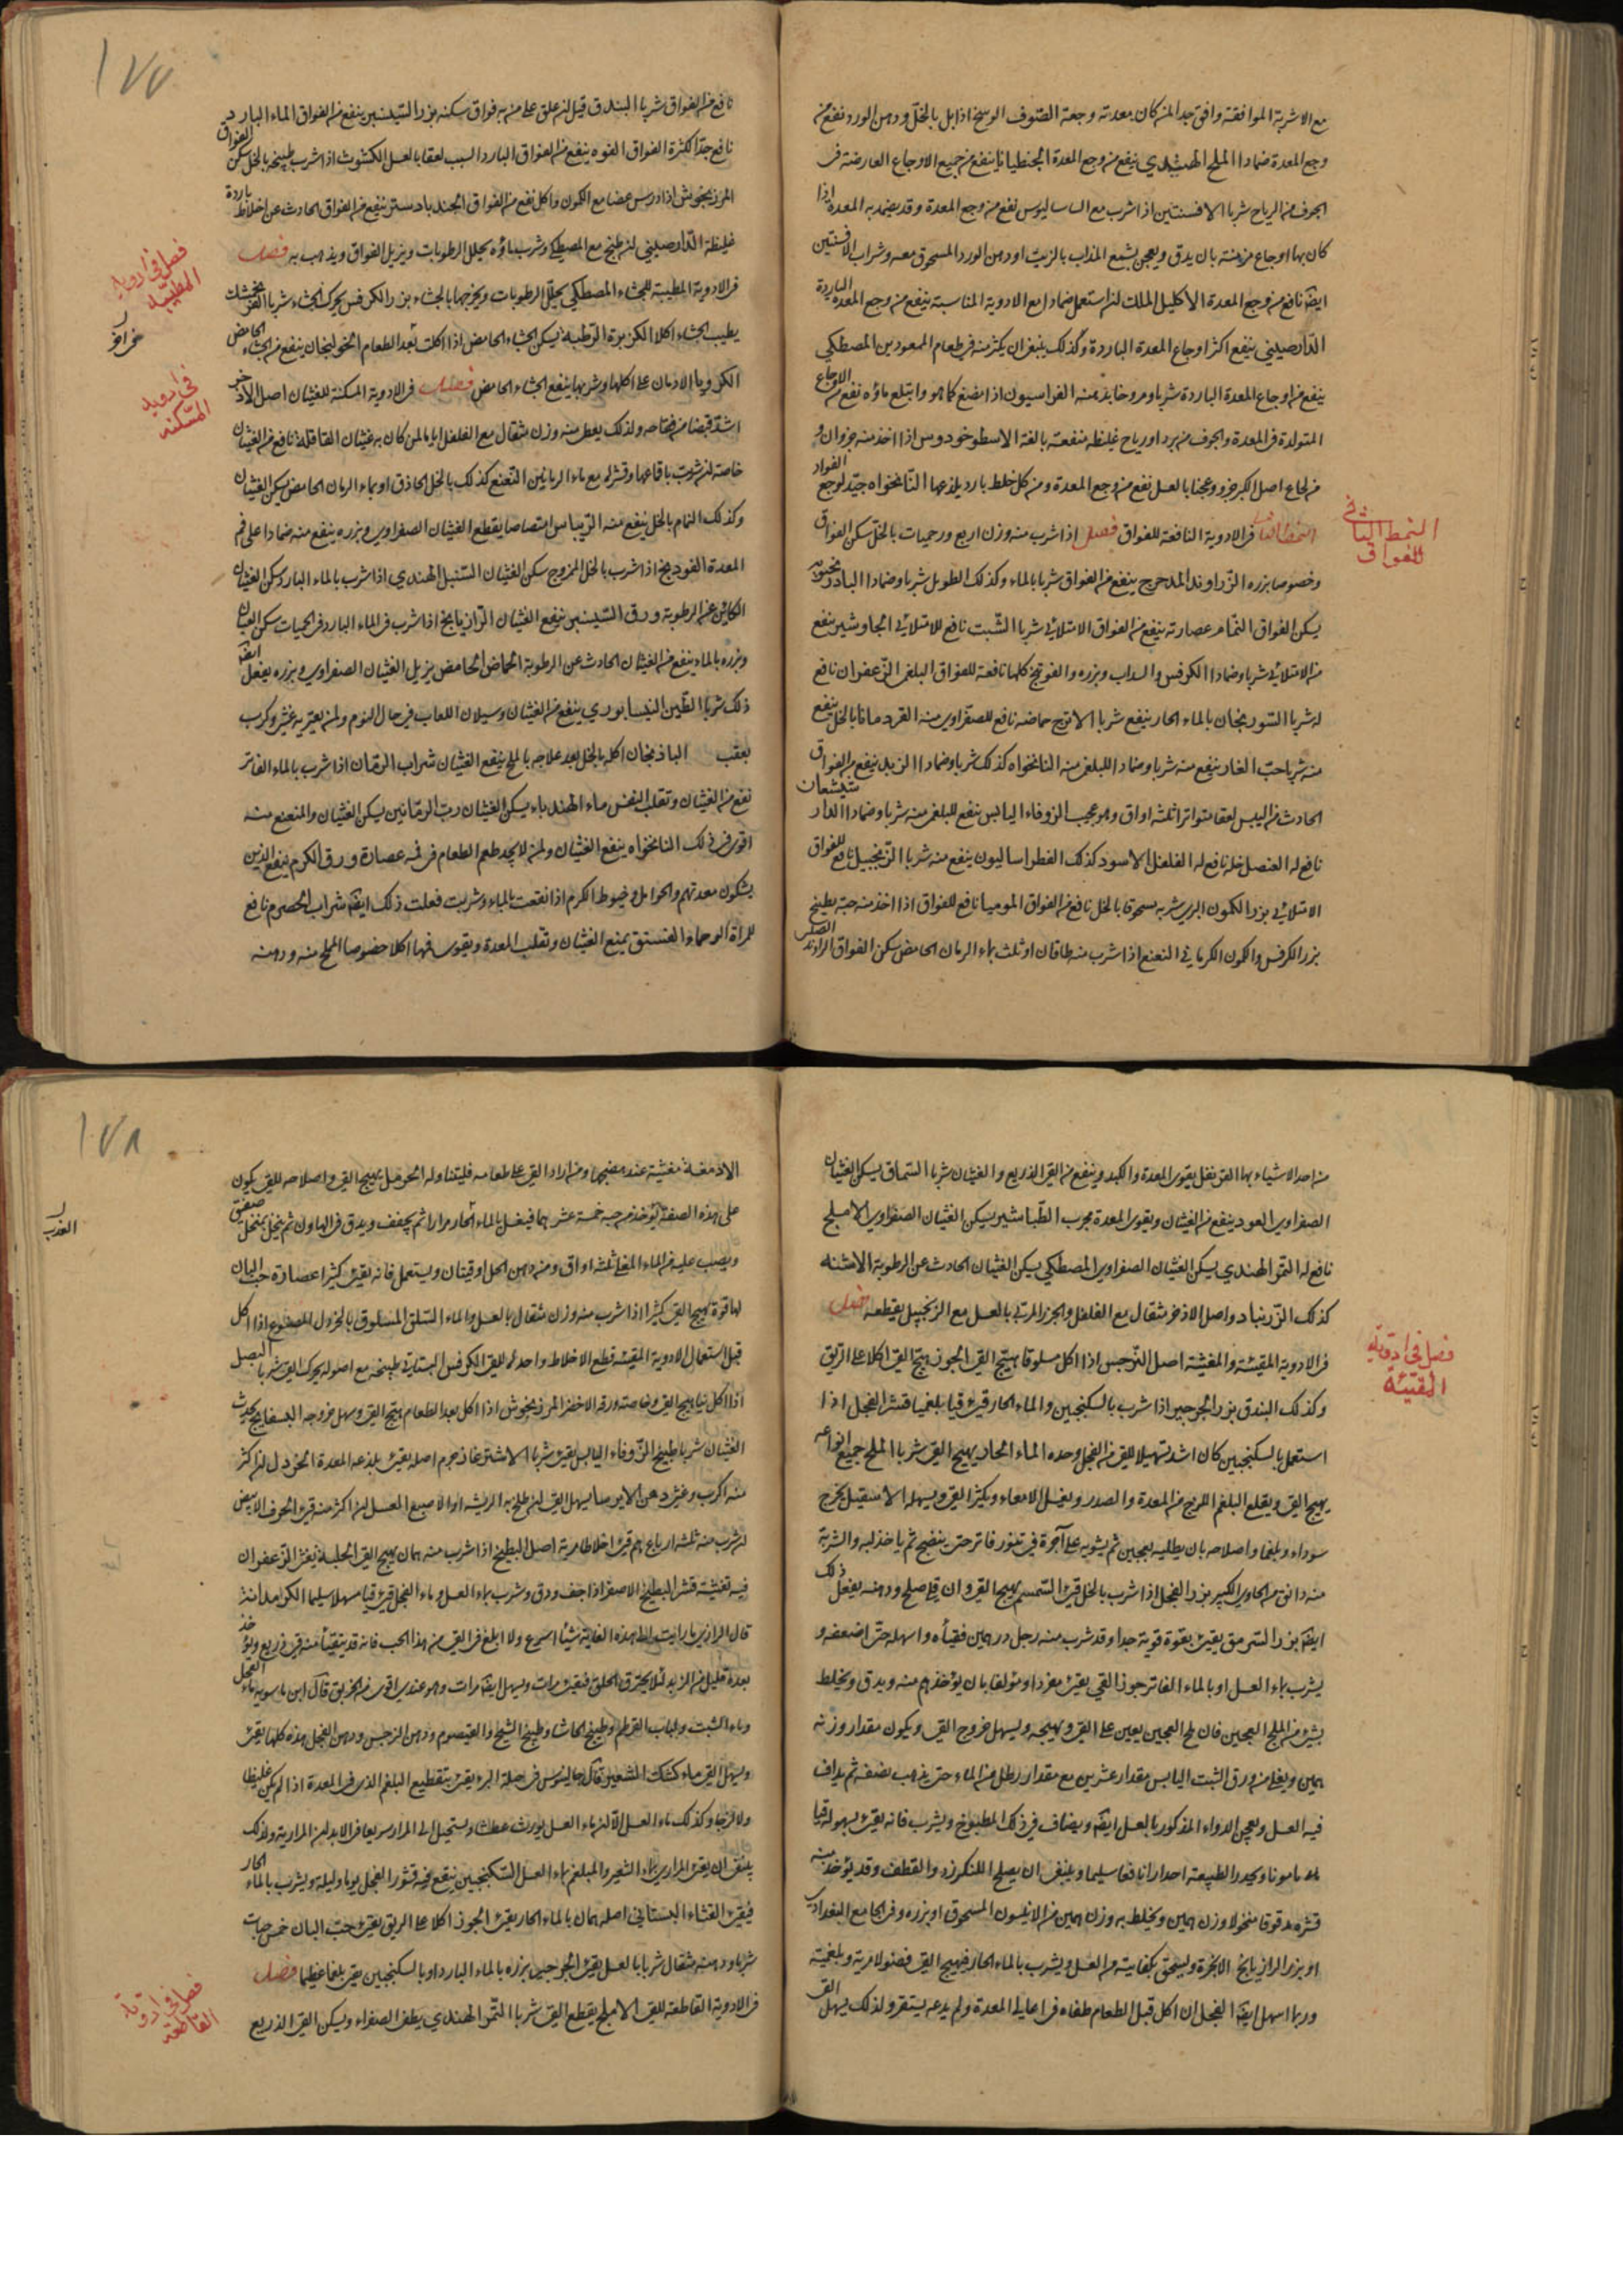 مع الاشربة الموافقة وافق جدا لمن كان بمعدته وجعة الصوف الوسخ اذا بل بالخل ودهن الورد نفع من
وجع المعدة ضمادا الملح الهندي ينفع من وجع المعدة الجنطيانا ينفع من جميع الاوجاع العارضة في
الجوف من الرياح شربا الافسنتين اذا شرب مع الساساليوس نفع من وجع المعدة وقد يضمد به المعدة اذا
كان بها اوجاع مزمنة بان يدق ويعجن بشمع المذاب بالزيت او دهن الورد المسحوق معه وشراب الافسنتين
ايضا نافع من وجع المعدة الاكليل الملك ان استعمل ضمادا مع الادوية المناسبة ينفع من وجع المعدة الباردة
الدارصيني ينفع اكثر اوجاع المعدة الباردة وكذلك ينبغي ان يكثر منه في طعام الممعودين المصطكي
ينفع من اوجاع المعدة الباردة شربا ومروخا بدهنه الفراسيون اذا مضغ كما هو وابتلع ماؤه نفع من الاوجاع
المتولدة في المعدة والجوف من برد او رياح غليظة منفعة بالغة الاسطوخودوس اذا اخذ منه جزوان و
من لحاء اصل الكبر جزو وعجنا بالعسل نفع من وجع المعدة ومن كل خلط بارد يلذعها النانخواه جيد لوجع الفواد
النمط الثاني في الادوية النافعة للفواق فصل اذا شرب منه وزن اربع ورحميات بالخل سكن الفواق
النمط الثاني للفواق
وخصوصا بزره الزراوند المدحرج ينفع من الفواق شربا بالماء وكذلك الطويل شربا وضمادا البادرنجبويه
يسكن الفواق النمام عصارته ينفع من الفواق الامتلائي شربا الشبت نافع للامتلائي الجاوشير ينفع
من الامتلائي شربا وضمادا الكرفس والسداب وبزره والفوتنج كلها نافعة للفواق البلغمي الزعفران نافع
له شربا السورنجان بالماء الحار ينفع شربا الاترج حماضه نافع للصفراوي منه القردمانا بالخل ينفع
منه شربا حب الغار ينفع منه شربا وضمادا للبلغمي منه النانخواه كذلك شربا وضمادا الزبيب ينفع من الفواق
الحادث من اليبس لعقا متواترا ثلثة اواق وهو عجيب الزوفاء اليابس نفع للبلغمي منه شربا وضمادا
نافع له العنصل خله نافع له الفلفل الاسود كذلك الفطراساليون ينفع منه شربا الزنجبيل نافع للفواق
الامتلائي بزر الكمون البري شربه مسحوقا بالخل نافع من الفواق الموميا نافع للفواق اذا اخذ منه حبة بطبيخ
بزر الكرفس والكمون الكرماني النعنع اذا شرب منه طاقان او ثلث بماء الرمان الحامض سكن الفواق
نافع من الفواق شربا البندق قيل ان علق على من به فواق سكنه بزر السيسنبر ينفع من الفواق الماء البارد
نافع جدا لكثرة الفواق الفوه ينفع من الفواق البارد السبب لعقا بالعسل الكشوث اذا شرب طبيخه بالخل سكن الفواق
المرزنجوش اذا درس غضا مع الكمون واكل نفع من الفواق الجندبادستر ينفع من الفواق الحادث عن اخلاط باردة
غليظة الدارصيني ان طبخ مع المصطكي وشرب ماؤه يحلل الرطوبات ويزيل الفواق ويذهب به فصل
في الادوية المطيبة للجشاء المصطكي يحلل الرطوبات ويخرجها بالجشاء بزر الكرفس يحرك الجشاء شربا
فصل في ادوية المطيبة
يطيب الجشاء اكلا الكزبرة الرطبة يسكن الجشاء الحامض اذا اكلت بعد الطعام الخولنجان ينفع من الجشاء الحامض
الكرويا الادمان على اكلها وشربها ينفع الجشاء الحامض فصل في الادوية المسكنة للغثيان اصل الاذخر
في ادوية المسكنه
اشد قبضا من فقاحه ولذلك يعطى منه وزن مثقال مع الفلفل اياما لمن كان به غثيان القاقلة نافع من الغثيان
خاصة ان شربت باقماعها وقشرها مع ماء الرمانين النعنع كذلك بالخل الحاذق او بماء الرمان الحامض يسكن الغثيان
وكذلك النمام بالخل ينفع منه الريباس امتصاصا يقطع الغثيان الصفراوي وبزره ينفع منه ضمادا على فم
المعدة الفودنج اذا شرب بالخل الممزوج سكن الغثيان السنبل الهندي اذا شرب بالماء البارد سكن الغثيان
الكائن عن الرطوبة ورق السيسنبر ينفع الغثيان الرازيانج اذا شرب في الماء البارد في الحميات سكن الغثيان
وبزره بالماء ينفع من الغثيان الحادث عن الرطوبة الحماض الحامض يزيل الغثيان الصفراوي وبزره يفعل ايضا
ذلك شربا الطين النيسابوري ينفع من الغثيان وسيلان اللعاب في حال النوم ولمن يعتريه غشي وكرب
بعقب الباذنجان اكله بالخل بعد علاجه بالملح ينفع الغثيان شراب الرمان اذا شرب بالماء الفاتر
نفع من الغثيان وتقلب النفس ماء الهندباء يسكن الغثيان رب الرمانين يسكن الغثيان والمنعنع منه
اقوى في ذلك النانخواه ينفع الغثيان ولمن لا يجد طعم الطعام في فمه عصارة ورق الكرم ينفع الذين
يشكون معدتهم والحوامل وخيوط الكرم اذا نقعت بالماء وشربت فعلت ذلك ايضا شراب الحصرم نافع
للمراة الوحماء الفستق يمنع الغثيان وتقلب المعدة ويقوي فمها اكلا خصوصا المملح منه ودهنه
١٧٧
من احد الاشياء بها القرنفل يقوي المعدة والكبد وينفع من القي الذريع والغثيان شربا السماق يسكن الغثيان
الصفراوي العود ينفع من الغثيان ويقوي المعدة مجرب الطباشير يسكن الغثيان الصفراوي الاملج
نافع له التمر الهندي يسكن الغثيان الصفراوي المصطكي يسكن الغثيان الحادث عن الرطوبة الاشنه
كذلك الزرنباد واصل الاذخر مثقال مع الفلفل والجزر المربى بالعسل مع الزنجبيل يقطعه فصل
في الادوية المقيئة والمغثية اصل النرجس اذا اكل مسلوقا يهيج القي الجوز يهيج القي اكلا على الريق
فصل في ادوية المقيئة
وكذلك البندق بزر الجرجير اذا شرب بالسكنجبين والماء الحار قيئ قيا بلغميا قشر الفجل اذا
استعمل بالسكنجبين كان اشد تسهيلا للقي من الفجل وحده الماء الحار يهيج القي شربا الملح جميع انواعه
يهيج القي ويقلع البلغم اللزج من المعدة والصدر ويغسل الامعاء ويكثر القي ويسهله الاسقيل يخرج
سوداء وبلغما واصلاحه بان يطليه بعجين ثم يشويه على آجرة في تنور فاتر حتى ينضج ثم ياخذ لبه والشربة
منه دانق من الحاوي الكبير بزر الفجل اذا شرب بالخل قيئ السمسم يهيج القي وان قلي صلح ودهنه يفعل ذلك
ايضا بزر السرمق يقيئ بقوة قوية جدا وقد شرب منه رجل درهمين فقيأه واسهله حتى اضعفه و
يشرب بماء العسل او بالماء الفاتر جوز القي يقيئ مفردا ومؤلفا بان يؤخذ درهم منه ويدق ويخلط
بشئ من الملح العجين فان ملح العجين يعين على القي ويهيجه ويسهل خروج القي ويكون مقدار وزنه
درهمين ويغلى من ورق الشبت اليابس مقدار عشرين مع مقدار رطل من الماء حتى يذهب نصفه ثم يداف
فيه العسل ويعجن الدواء المذكور بالعسل ايضا ويضاف في ذلك المطبوخ ويشرب فانه يقيئ بسهولة قيا
مامونا ويحدر الطبيعة احدارا نافعا سليما وينبغي ان يصلح الكنكرزد والقطف وقد يؤخذ منه
قشره مدقوقا منخولا وزن درهمين ويخلط به وزن درهمين من الانيسون المسحوق او بزره وفي الجامع البغدادي
او بزر الرازيانج الانجرة ويسحق بكفايته من العسل ويشرب بالماء الحار فيهيج القي فضولا مرية وبلغمية
وربما اسهل ايضا الفجل ان اكل قبل الطعام طفاه في اعالي المعدة ولم يدعه يستقر ولذلك يسهل القي
الادمغة مغثية عند هضمها ومن اراد القي على طعامه فليتناوله الخردل يهيج القي واصلاحه للقي يكون
على هذه الصفة يؤخذ من حبه خمسة عشر درهما فيغسل بالماء الحار مرارا ثم يجفف ويدق في الهاون ثم ينخل بمنخل صفيق
ويصب عليه من الماء المغلي ثلثة اواق ومن دهن الحل اوقيتان ويستعمل فانه يقيئ كثيرا عصارة حب البان
لها قوة تهيج القي كثيرا اذا شرب منه وزن مثقال بالعسل والماء السلق المسلوق بالخردل المصنوع اذا اكل
قبل استعمال الادوية المقيئة قطع الاخلاط واحدها للقي الكرفس البستاني طبيخه مع اصوله يحرك القي شربا البصل
اذا اكل نيا يهيج القي وخاصة ورقه الاخضر المرزنجوش اذا اكل بعد الطعام يهيج القي وسهل خروجه البسفايج يحدث
الغثيان شربا طبيخ الزوفاء اليابس يقيئ شربا الاشترغاز جرم اصله يقيئ بلذعه المعدة الخردل ان اكثر
منه اكرب وغثى دهن الايرسا يسهل القي ان طلخ به الريشة او الاصبع العسل ان اكثر منه قيئ الحرف الابيض
ان شرب منه ثلثة ارباع درهم قيئ اخلاطا مرية اصل البطيخ اذا شرب منه درهمان يهيج القي الحلبة يغثي الزعفران
فيه تغثية قشر البطيخ الاصفر اذا جفف ودق وشرب بماء العسل وماء الفجل قيئ قيا سهلا سليما
قال الرازي ما رايت هذه الغاية شيئا اسرع ولا ابلغ في القي من هذا الحب فانه قد يتقيأ منه في ربع
بعده قليل من الزبد لئلا يحترق الحلق فيقيئ مرات ويسهل ايضا مرات وهو عندي اقوى من الخربق قال ابن ماسويه ماء الفجل
وماء الشبت ولباب القرطم وطبيخ الحاشا وطبيخ الشيح والقيصوم ودهن النرجس ودهن الفجل هذه كلها يقيئ
ويسهل القي ماء كشك الشعير قال جالينوس في حيلة البرء يقيئ بتقطيع البلغم الذي في المعدة اذا لم يكن غليظا
ولا لزجا وكذلك ماء العسل الا ان ماء العسل يورث عطشا ويستحيل الى المرار سريعا في الابدان المرارية ولذلك
ينبغي ان يقيئ المراري بماء الشعير والمبلغم بماء العسل السكنجبين ينقع فيه قشور الفجل يوما وليلة ويشرب بالماء الحار
فيقيئ القثاء البستاني اصله درهمان بالماء الحار يقيئ الجوز اكلا على الريق يقيئ حب البان خمس حبات
شربا ودهنه مثقال شربا بالعسل يقيئ الجرجير بزره بالماء البارد او بالسكنجبين يقيئ بلغما غليظا فصل
في الادوية القاطعة للقي الاملج يقطع القي شربا التمر الهندي يطفئ الصفراء ويسكن القي الذريع
فصل في ادوية القاطعة
١٧٨